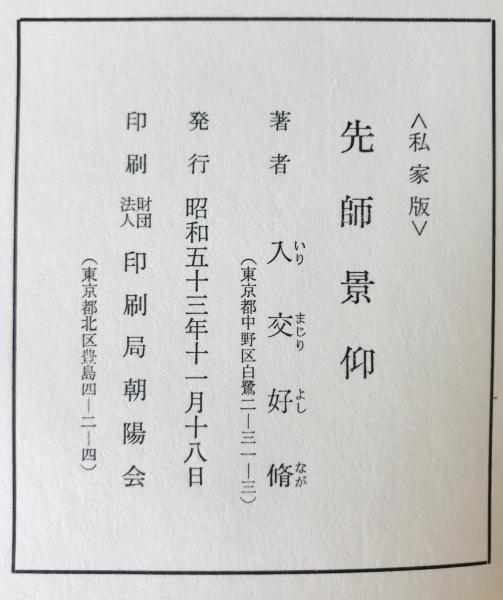 <私家版>
先師景仰
著者 入交好脩
いり まじり よし なが
(東京都中野区白鷺二―三一―三)
発行 昭和五十三年十一月十八日
印刷 財団法人 印刷局朝陽会
(東京都北区豊島四―二―四)